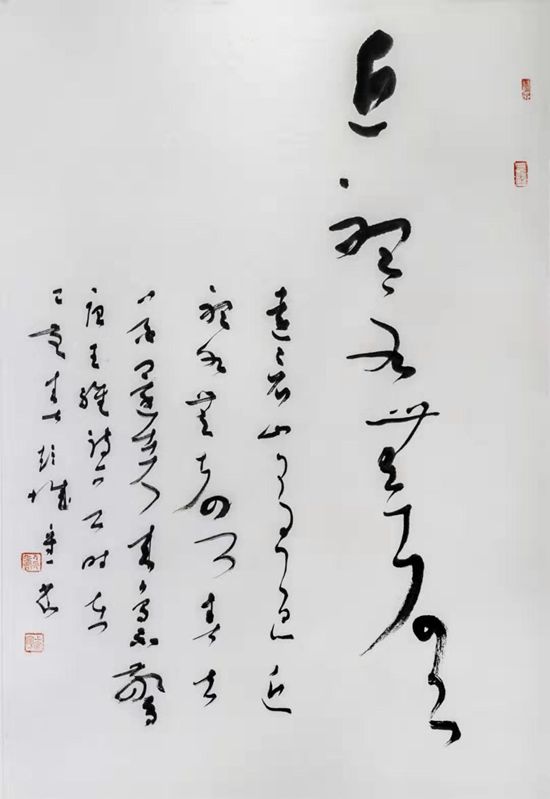 近聽水無聲
遠看山有色近
聽水無聲春去
花還在人來鳥不驚
唐王維詩時在
己亥春彭